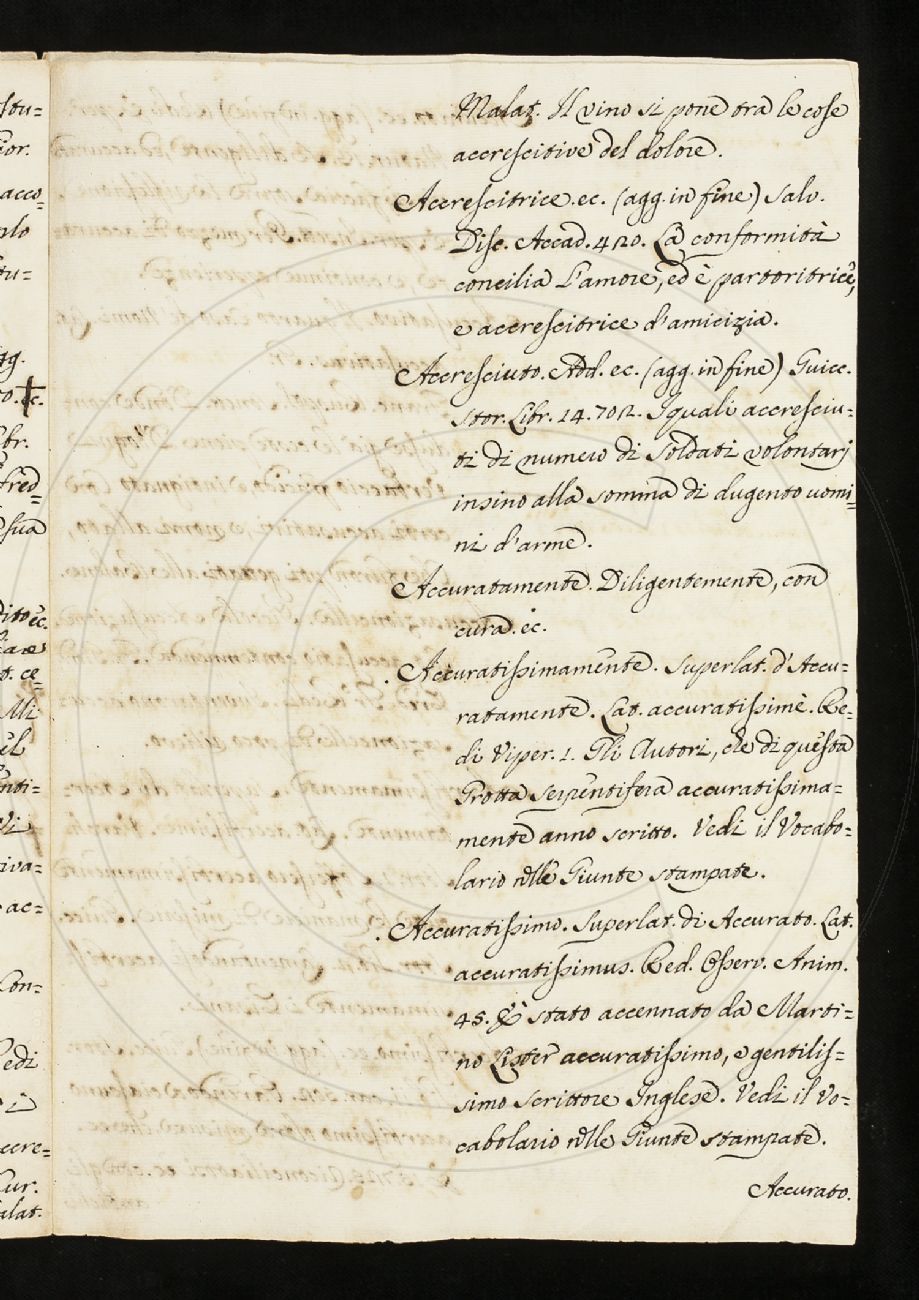 Malat. Il vino si pone tra le cose
accrescitive del dolore.
Accrescitrice. ec. (agg. in fine) Salv.
Disc. Accad. 420. La conformità
concilia l'amore, ed è partoritrice,
e accrescitrice d'amicizia.
Accresciuto. Add. ec. (agg. in fine) Guicc.
Stor. Libr. 14. 702. I quali accresciu=
ti di numero di soldati volontarj
insino alla somma di dugento uomi=
ni d'arme.
Accuratamente. Diligentemente, con
cura. ec.
. Accuratissimamente. Superlat. d'Accu=
ratamente. Lat. accuratissimè. Re=
di Viper. 1. Gli Autori, che di questa
Grotta serpentifera accuratissima=
mente anno scritto. Vedi il Vocabo=
lario nlle Giunte stampate.
. Accuratissimo. Superlat. di Accurato. Lat.
accuratissimus. Red. Osserv. Anim.
45. È stato accennato da Marti=
no Lister accuratissimo, e gentilis=
simo scrittore Inglese. Vedi il Vo=
cabolario nlle Giunte stampate.
Accurato.